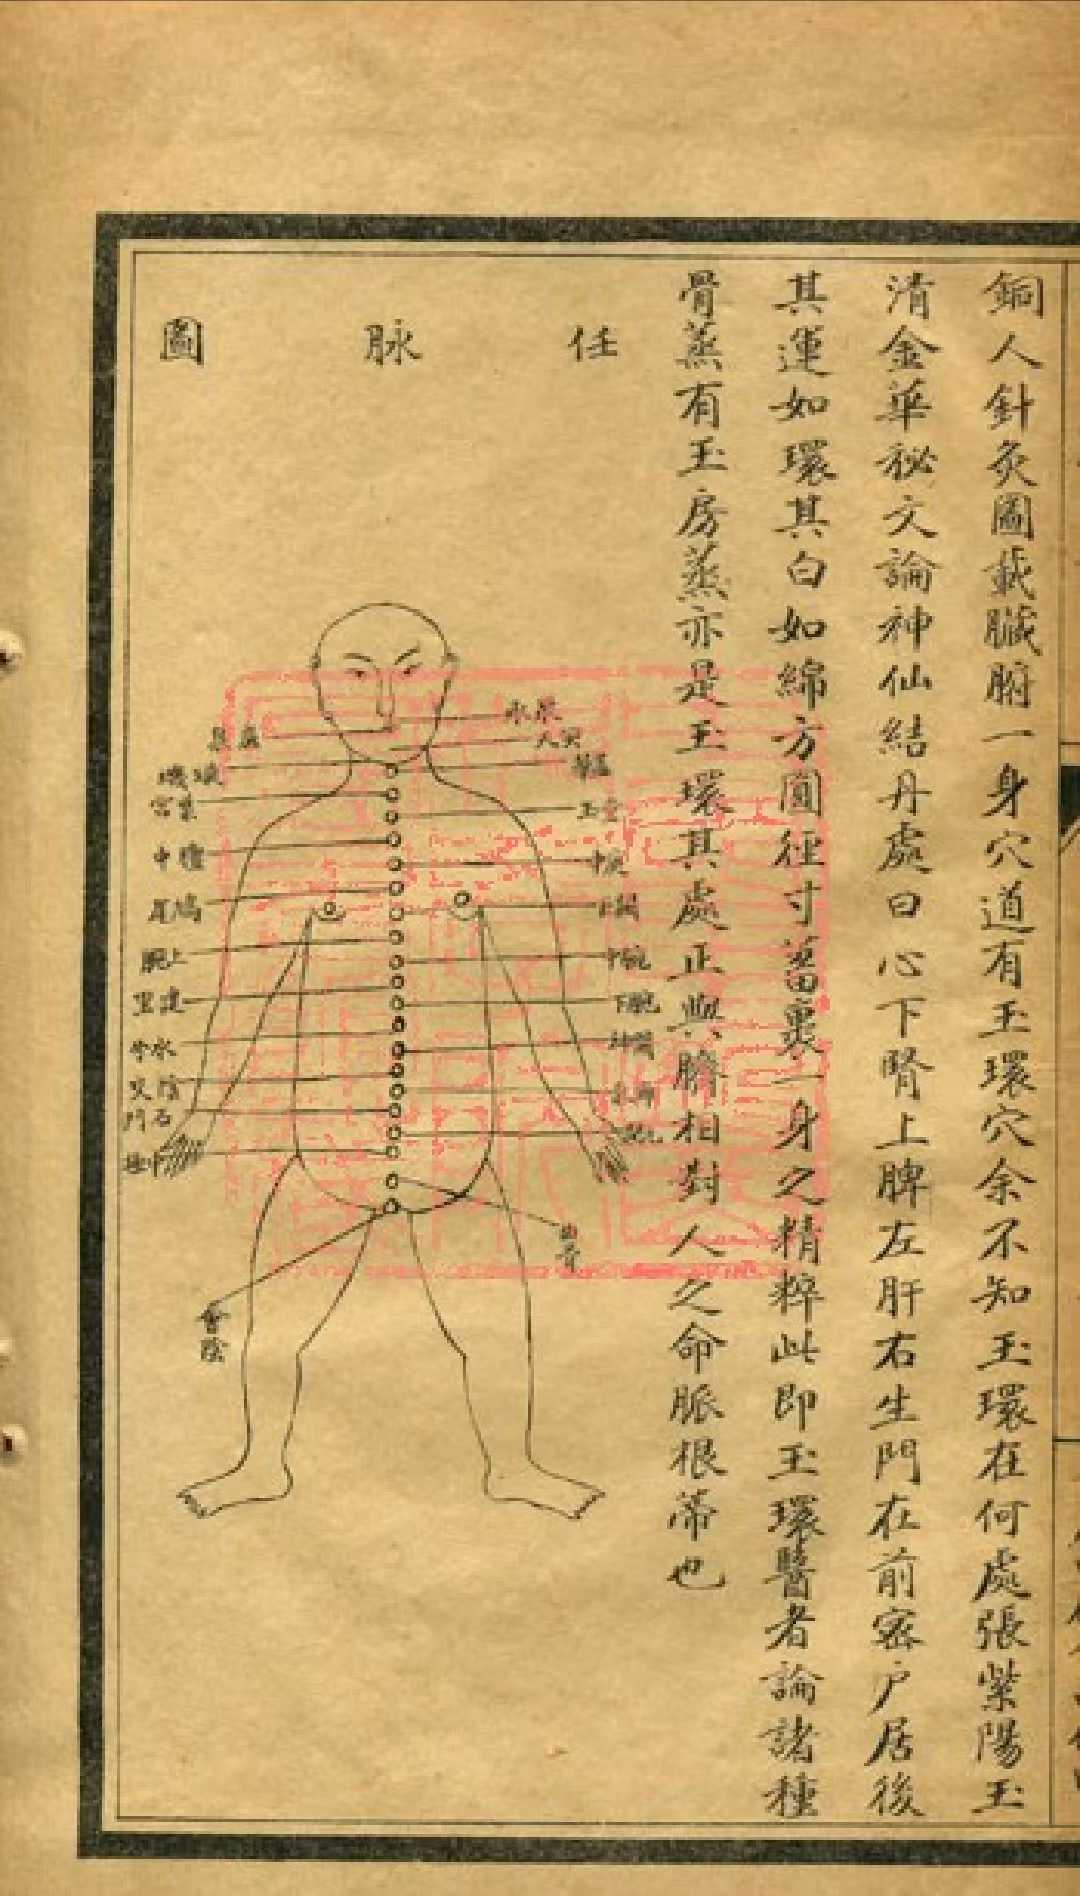 銅人針灸圖載臟腑一身穴道有玉環穴余不知玉環在何處張紫陽玉
清金華秘文論神仙結丹處曰心下腎上脾左肝右生門在前密户居後
其運如環其白如綿方圓徑寸蓄裹一身之精粹此即玉環醫者論諸種
骨蒸有玉房蒸亦是玉環其處正與臍相對人之命脈根蒂也
任脉圖
承漿
天突
華蓋
玉堂
中庭
中脘
下脘
曲骨
璇璣
紫宮
膻中
鳩尾
上脘
建里
水分
陰交
石門
中極
會陰